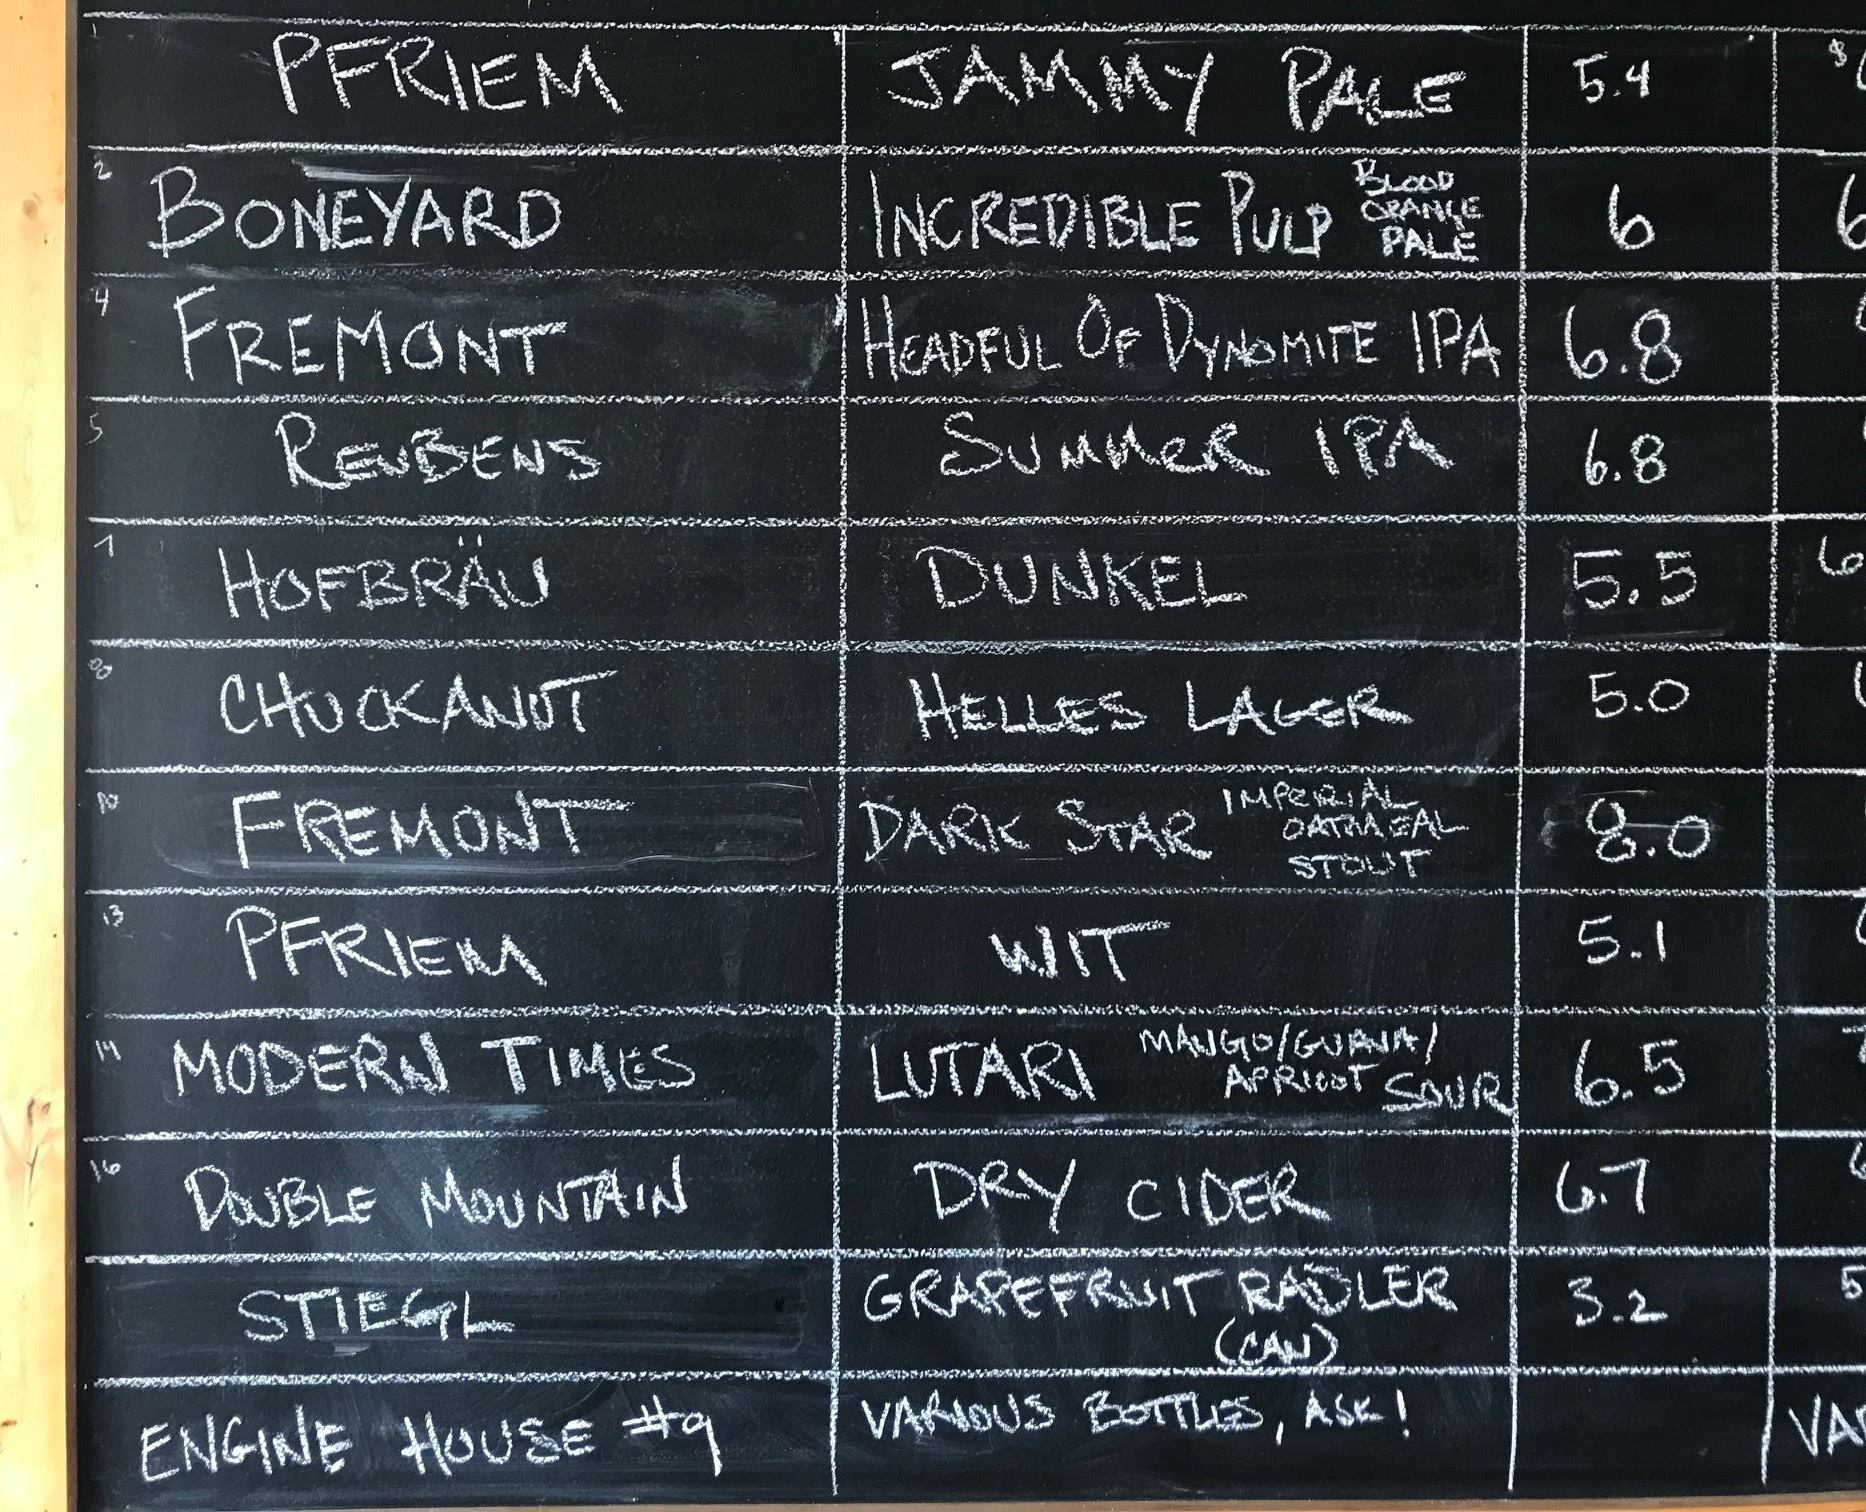 1 PFRIEM JAMMY PALE 5.4 $
2 BONEYARD INCREDIBLE PULP BLOOD ORANGE PALE 6 6
4 FREMONT HEADFUL OF DYNOMITE IPA 6.8
5 REUBENS SUMMER IPA 6.8
7 HOFBRÄU DUNKEL 5.5 6
8 CHUCKANUT HELLES LAGER 5.0
10 FREMONT DARK STAR IMPERIAL OATMEAL STOUT 8.0
13 PFRIEM WIT 5.1
14 MODERN TIMES LUTARI MANGO/GUAVA/ APRICOT SOUR 6.5
16 DOUBLE MOUNTAIN DRY CIDER 6.7
STIEGL GRAPEFRUIT RADLER 3.2 5
(CAN)
ENGINE HOUSE #9 VARIOUS BOTTLES, ASK! VA